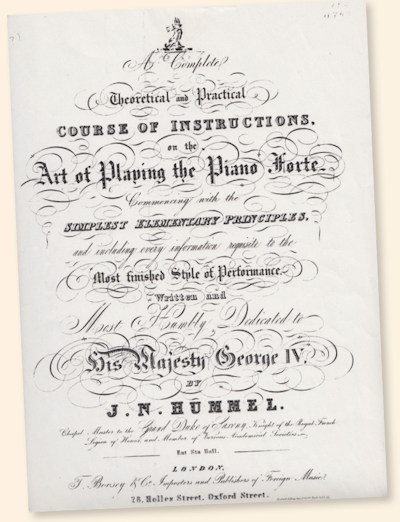 A Complete
Theoretical and Practical
COURSE OF INSTRUCTIONS,
on the
Art of Playing the Piano Forte
Commencing with the
SIMPLEST ELEMENTARY PRINCIPLES,
and including every information requisite to the
Most finished Style of Performance
Written and
Most Humbly Dedicated to
His Majesty George IV.
BY
J. N. HUMMEL.
Chapel Master to the Grand Duke of Saxony, Knight of the Royal French
Legion of Honor, and Member of Various Academical Societies.
Ent Sta Hall.
LONDON,
T. Boosey & Co. Importers and Publishers of Foreign Music,
28, Holles Street, Oxford Street.